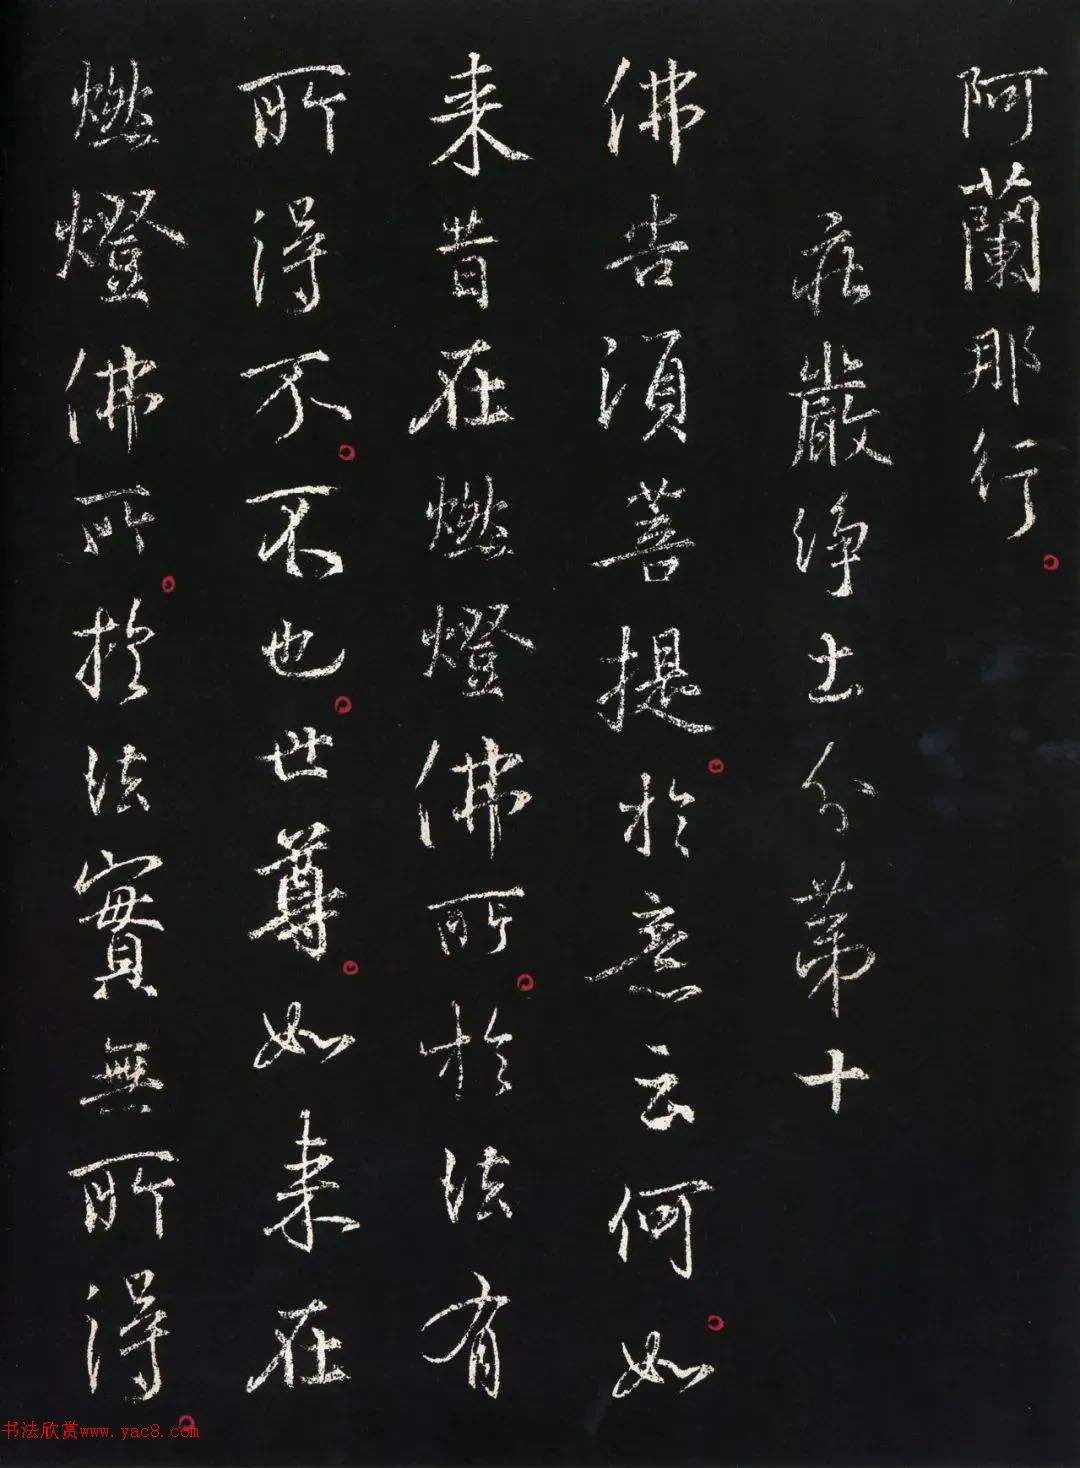 阿蘭那行
莊嚴淨土分第十
佛告須菩提於意云何如
来昔在燃燈佛所於法有
所得不不也世尊如来在
燃燈佛所於法實無所得
书法欣赏www.yac8.com